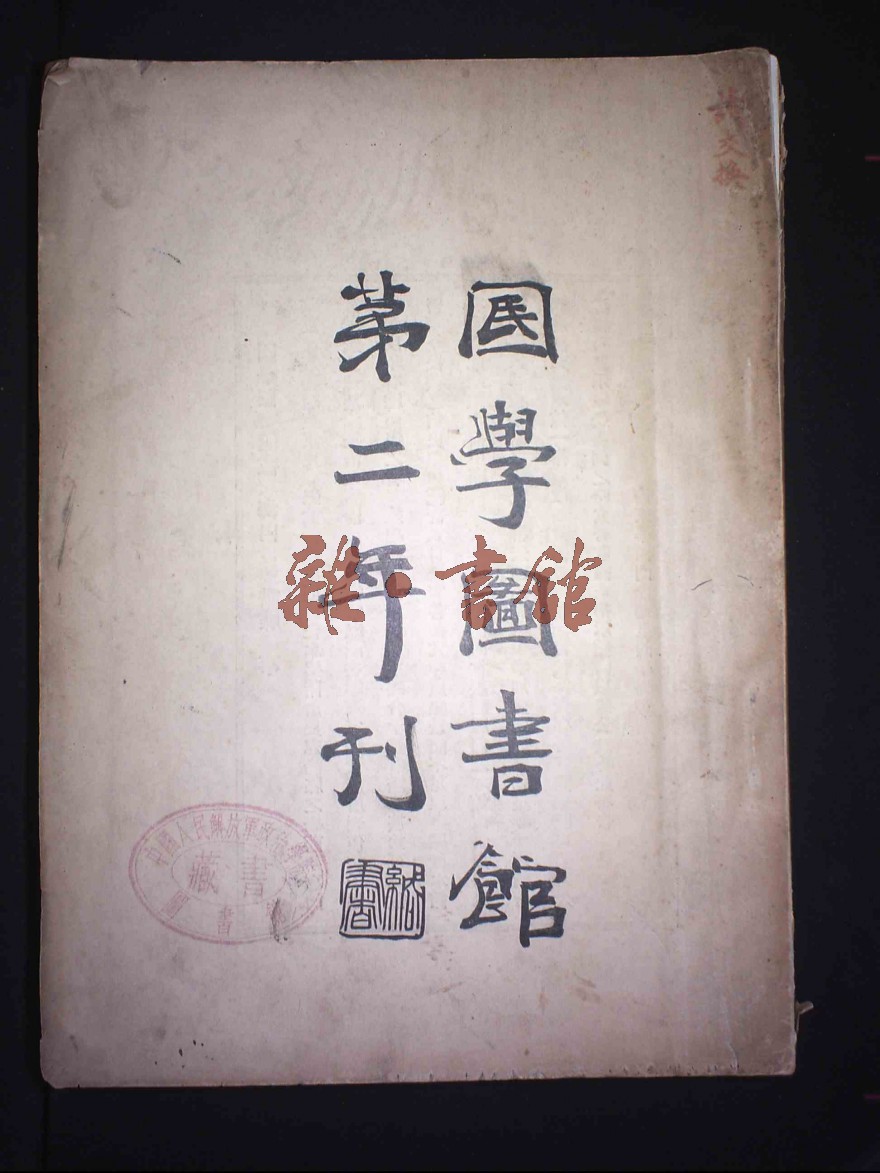 囻學圖書館
第二年刊
雜·書館
中國人民解放軍政治學院
藏書
圖書館